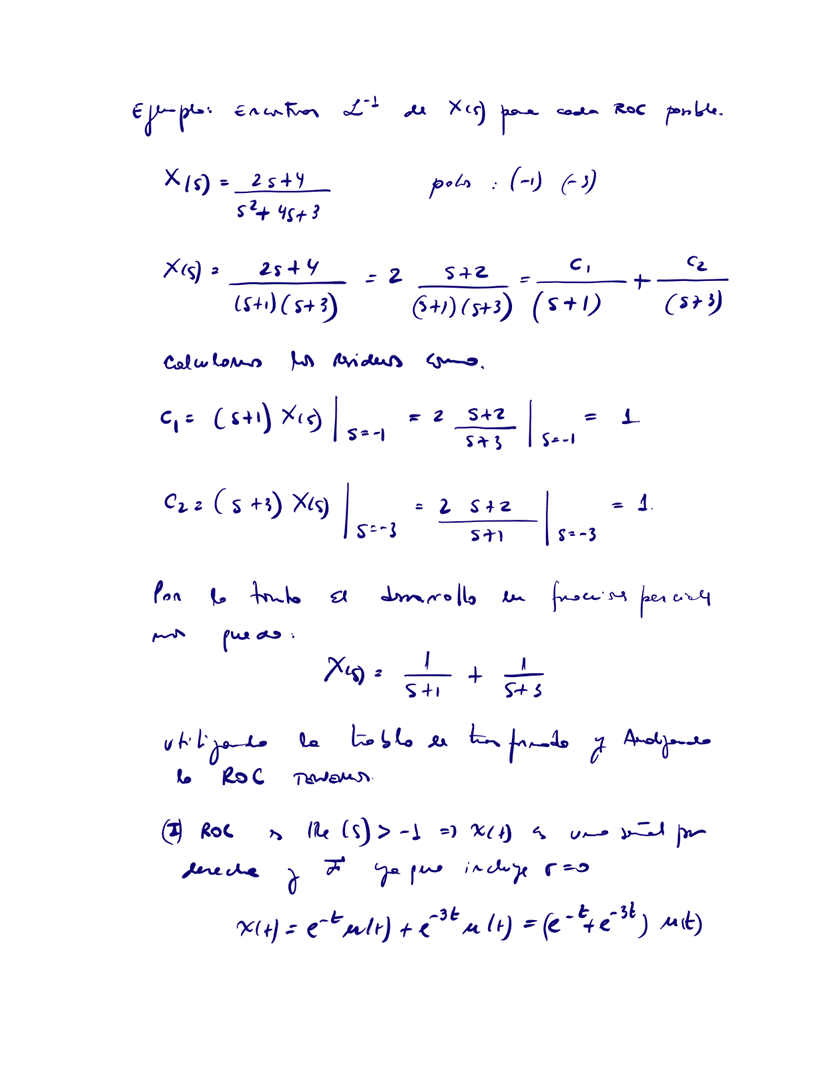 Ejemplo: Encontrar ℒ⁻¹ de X(s) para cada ROC posible.
X(s) = (2s+4)/(s²+4s+3)   polos : (-1) (-3)
X(s) = (2s+4)/((s+1)(s+3)) = 2 (s+2)/((s+1)(s+3)) = C₁/(s+1) + C₂/(s+3)
Calculamos los residuos como.
C₁ = (s+1) X(s) |s=-1 = 2 (s+2)/(s+3) |s=-1 = 1
C₂ = (s+3) X(s) |s=-3 = (2 s+2)/(s+1) |s=-3 = 1.
Por lo tanto el desarrollo en fracciones parciales
nos queda:
X(s) = 1/(s+1) + 1/(s+3)
utilizando la tabla de transformada y Analizando
la ROC Tenemos.
(I) ROC es Re(s) > -1 => x(t) es una señal por
derecha y ∃ ℱ ya que incluye σ=0
x(t) = e^{-t} μ(t) + e^{-3t} μ(t) = (e^{-t} + e^{-3t}) μ(t)